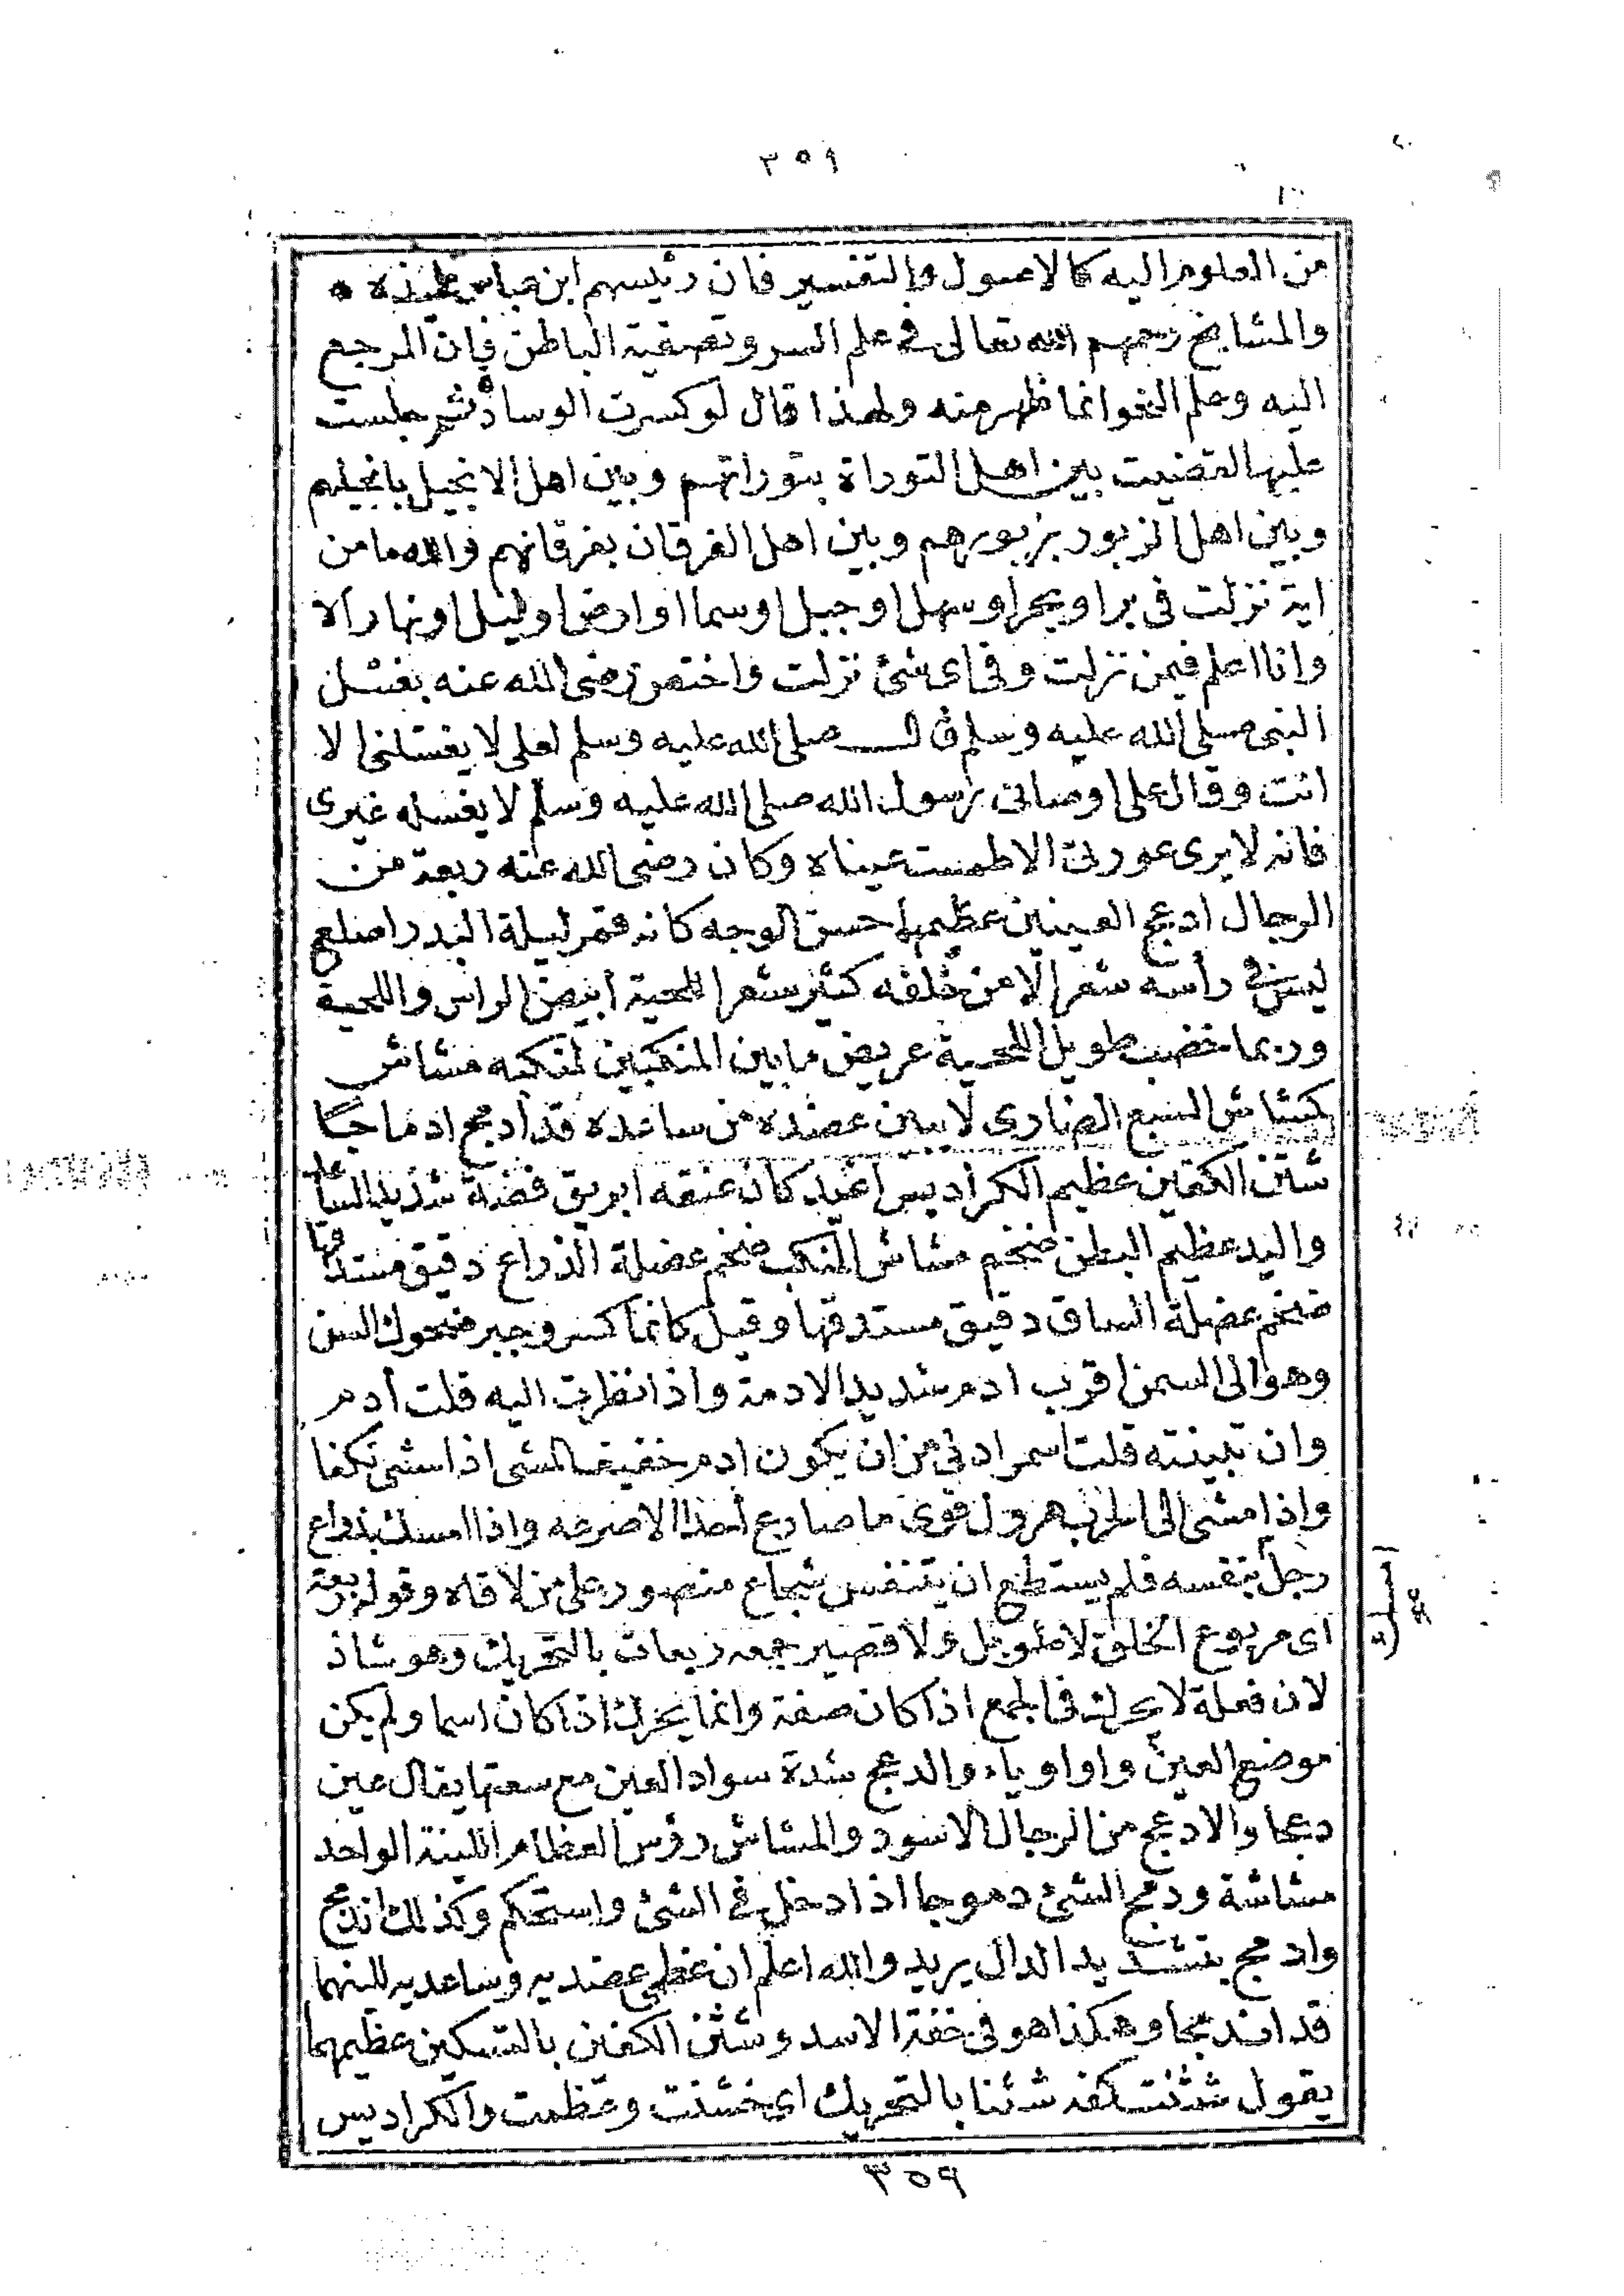 ٣٥٩
من العلوم اليه كالاصول والتفسير فان رئيسهم ابن عباس تلميذه
والمشايخ رحمهم الله تعالى فى علم السر وتصفية الباطن فان المرجع
اليه وعلم النحو انما ظهر منه ولهذا قال لو كسرت الوسادة ثم جلست
عليها لقضيت بين اهل التوراة بتوراتهم وبين اهل الانجيل بانجيلهم
وبين اهل الزبور بزبورهم وبين اهل الفرقان بفرقانهم والله ما من
اية نزلت فى بر او بحر او سهل او جبل او سما او ارض او ليل او نهار الا
وانا اعلم فيمن نزلت وفى اى شئ نزلت واختص رضى الله عنه بغسل
النبى صلى الله عليه وسلم قال صلى الله عليه وسلم لعلى لا يغسلنى الا
انت وقال على اوصانى رسول الله صلى الله عليه وسلم لا يغسله غيرى
فانه لا يرى عورتى الا طمست عيناه وكان رضى الله عنه ربعة من
الرجال ادعج العينين عظيمهما حسن الوجه كانه قمر ليلة البدر اصلع
ليس فى رأسه شعر الا من خلفه كثير شعر اللحية ابيض الراس واللحية
وربما خضب طويل اللحية عريض ما بين المنكبين لمنكبه مشاش
كمشاش السبع الضارى لا يبين عضده من ساعده قد ادمج ادماجا
شثن الكفين عظيم الكراديس اغيد كان عنقه ابريق فضة شديد الساعد
واليد عظيم البطن ضخم مشاش المنكب ضخم عضلة الذراع دقيق مستدقها
ضخم عضلة الساق دقيق مستدقها وقيل كانما كسر وجبر ضحوك السن
وهو الى السمن اقرب ادم شديد الادمة واذا نظرت اليه قلت أدم
وان تبينته قلت اسمر ادنى من ان يكون ادم خفيف المشى اذا مشى تكفا
واذا مشى الى الحرب هرول قوى ما صارع أحدا الا صرعه واذا امسك بذراع
رجل بنفسه فلم يستطع ان يتنفس شجاع منصور على من لاقاه وقوله ربعة
اى مربوع الخلق لا طويل ولا قصير جمعه ربعات بالتحريك وهو شاذ
لان فعلة لا يحرك فى الجمع اذا كان صفة وانما يحرك اذا كان اسما ولم يكن
موضع العين واو او ياء والدعج شدة سواد العين مع سعتها يقال عين
دعجا والادعج من الرجال الاسود والمشاش رؤس العظام اللينة الواحد
مشاشة ودمج الشئ دموجا اذا دخل فى الشئ واستحكم وكذلك اندمج
وادمج بتشديد الدال يريد والله اعلم ان عظمى عضديه وساعديه للينهما
قد اندمجا وهكذا هو فى خفة الاسد وشثن الكفين بالتسكين عظيمهما
يقول شثنت كفه شثنا بالتحريك اى خشنت وعظمت والكراديس
٣٥٩